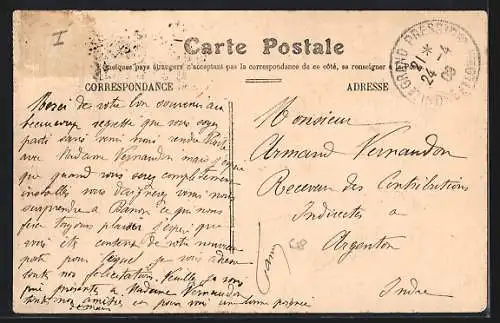 I
Carte Postale
Quelques pays étrangers n'acceptant pas la correspondance de ce côté, se renseigner à la Poste
CORRESPONDANCE
ADRESSE
LE GRAND PRESSIGNY
24 -4 08
INDRE
Merci de votre bon souvenir ai
beaucoup regretté que vous soyez
parti sans venir nous rendre
avec Madame Vernaudon mais j'espère
que quand vous serez complètement
installés vous nous
surprendre a ce qui nous
fera toujours plaisir j'espère que
vous êtes content de votre nouveau
poste pour lequel je vous adresse
toutes nos félicitations. Veuillez je vous
prie présenter à Madame Vernaudon
toutes nos amitiés et pour vous une bonne poignée
de main
Monsieur
Armand Vernaudon
Receveur des Contributions
Indirectes a
Argenton
Indre